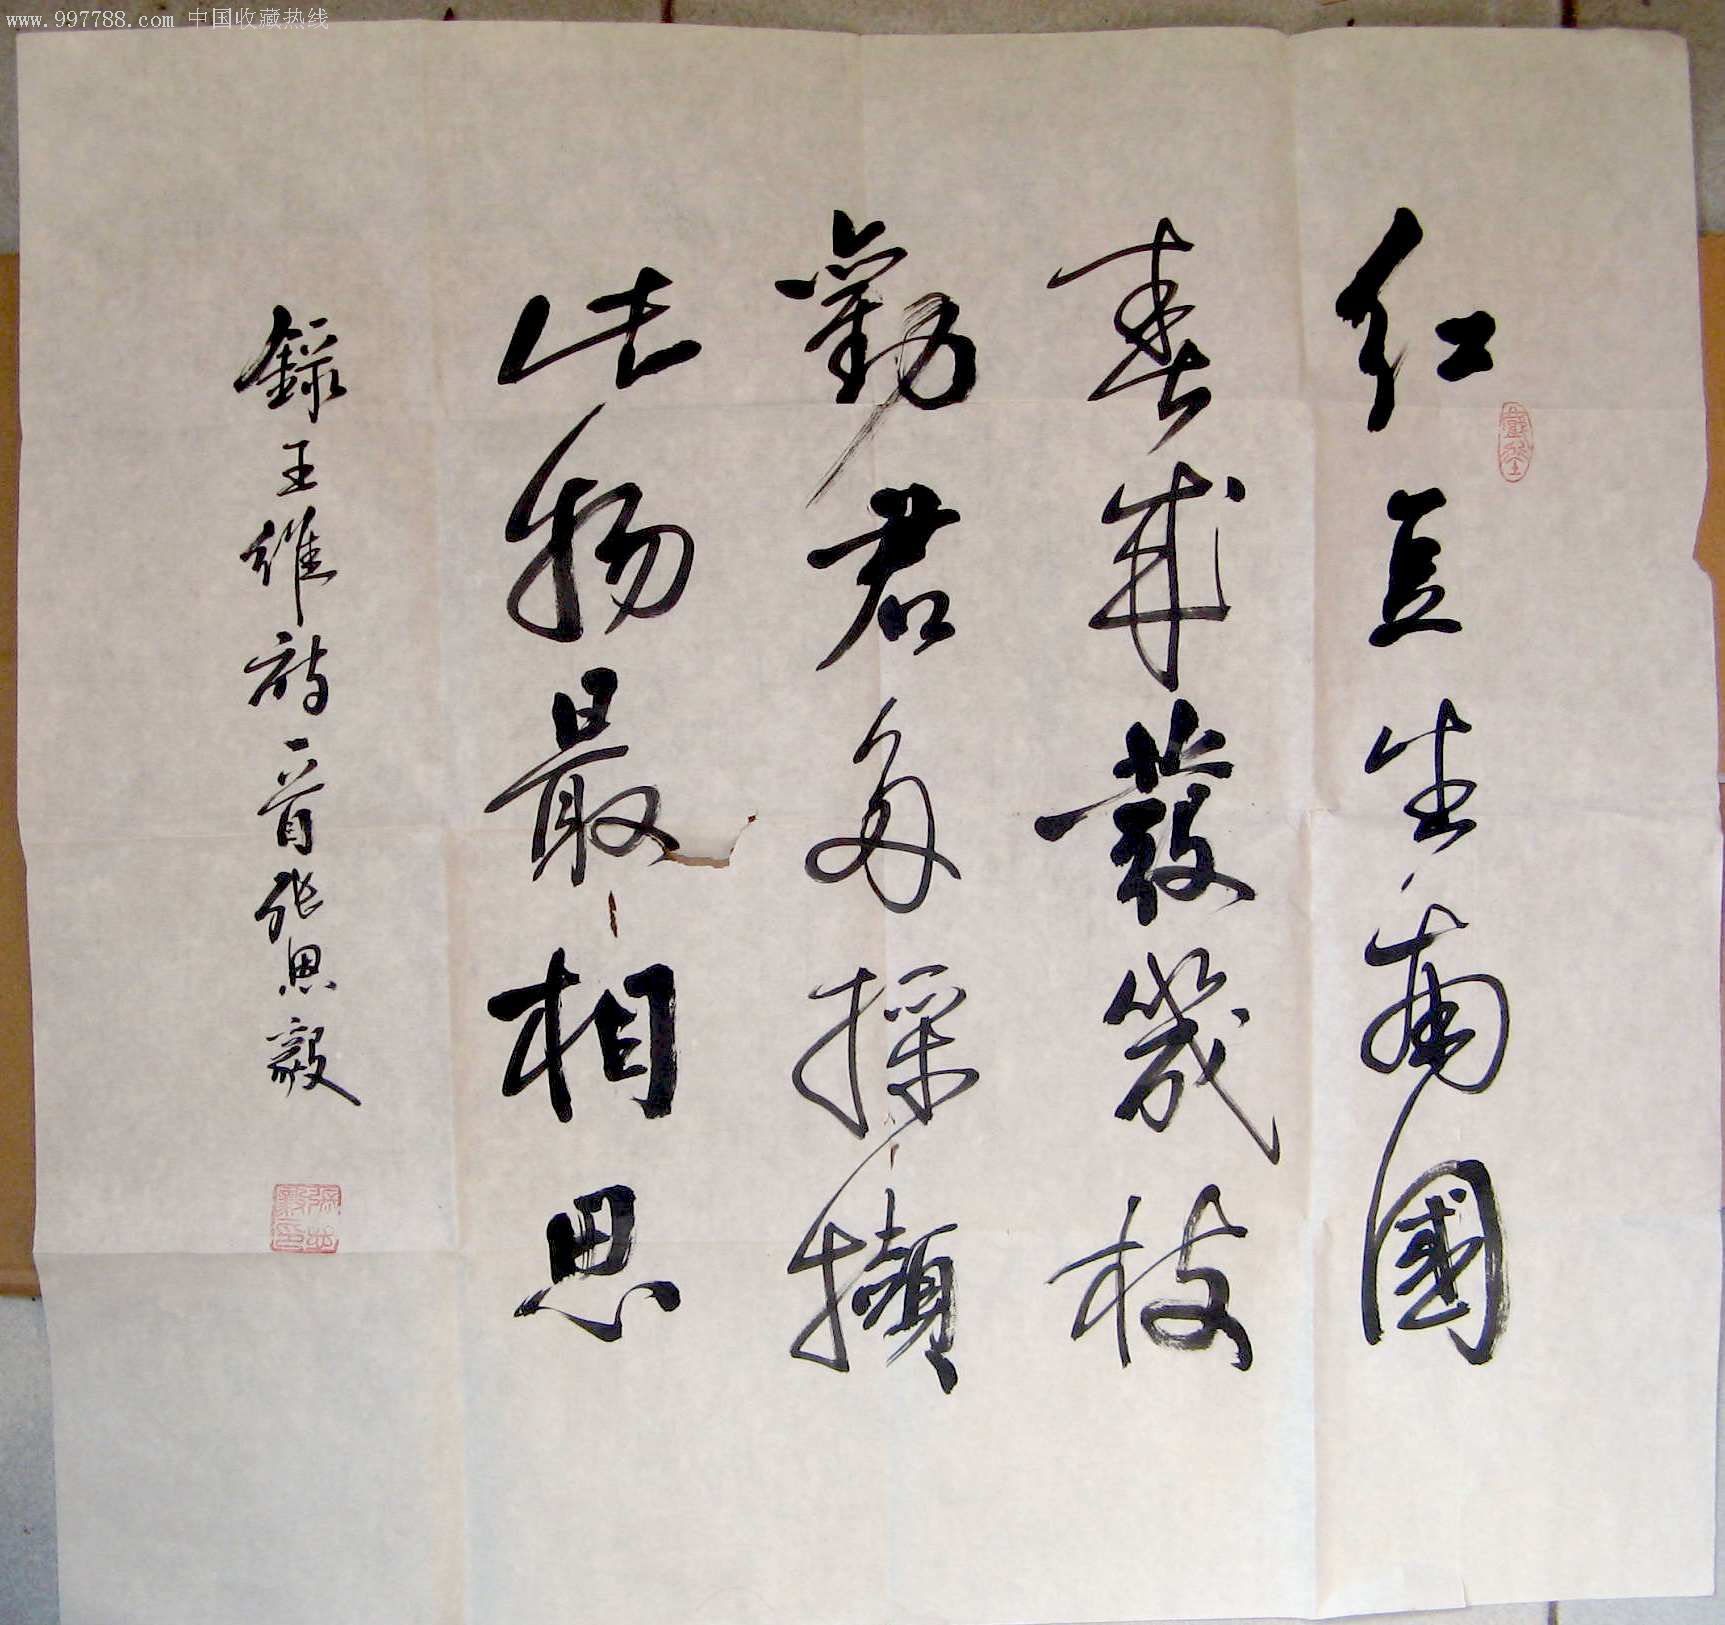 www.997788.com 中国收藏热线
紅豆生南國
春來發幾枝
勸君多採擷
此物最相思
錄王維詩一首張思毅